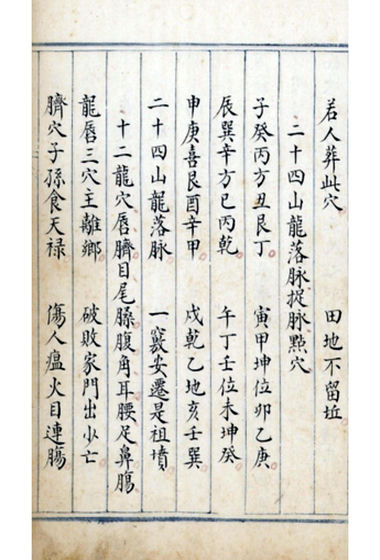 若人葬此穴　田地不留坵
二十四山龍落脉捉脉㸃穴
子癸丙方丑艮丁　寅甲坤位卯乙庚
辰巽辛方巳丙乾　午丁壬位未坤癸
申庚喜艮酉辛甲　戌乾乙地亥壬巽
二十四山龍落脉　一竅安遷是祖墳
十二龍穴唇臍目尾𦞣腹角耳腰足鼻腸
龍唇三穴主離鄉　破敗家門出少亡
臍穴子孫食天禄　傷人瘟火目連腸